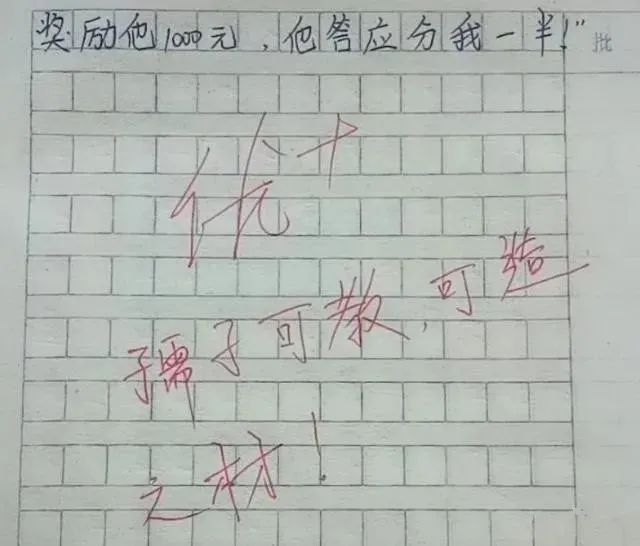 奖励他1000元，他答应分我一半！” 批
优+
孺子可教，可造
之材！